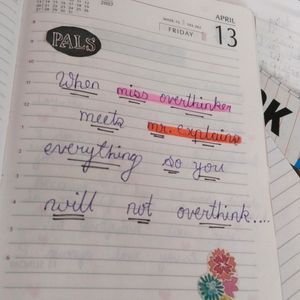 2007
APRIL
FRIDAY
13
PALS
When miss overthinker
meets mr. explains
everything so you
will not overthink....